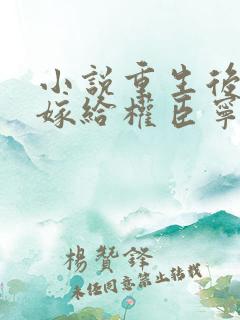 小說重生後
嫁給權臣寧
楊贊鋒
未经同意禁止转载